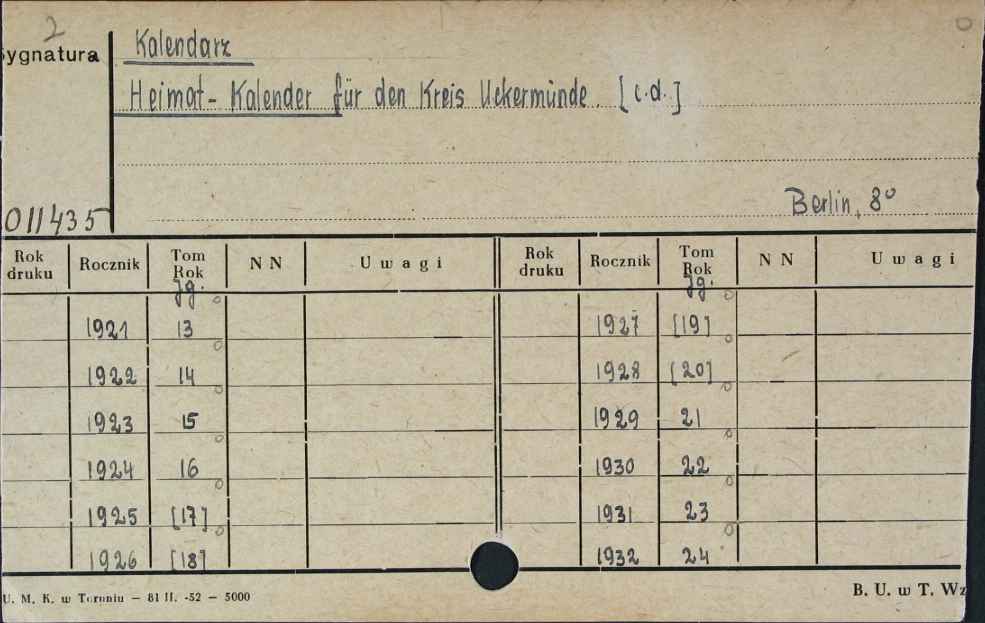 2
Sygnatura
Kalendarz
Heimat- Kalender für den Kreis Uckermünde. [c.d.]
Berlin, 8°
011435
Rok druku Rocznik Tom Rok NN Uwagi Rok druku Rocznik Tom Rok NN Uwagi
Jg. Jg.
1921 13 1927 [19]
1922 14 1928 [20]
1923 15 1929 21
1924 16 1930 22
1925 [17] 1931 23
1926 [18] 1932 24
U. M. K. w Toruniu — 81 II. -52 — 5000
B. U. w T. Wz